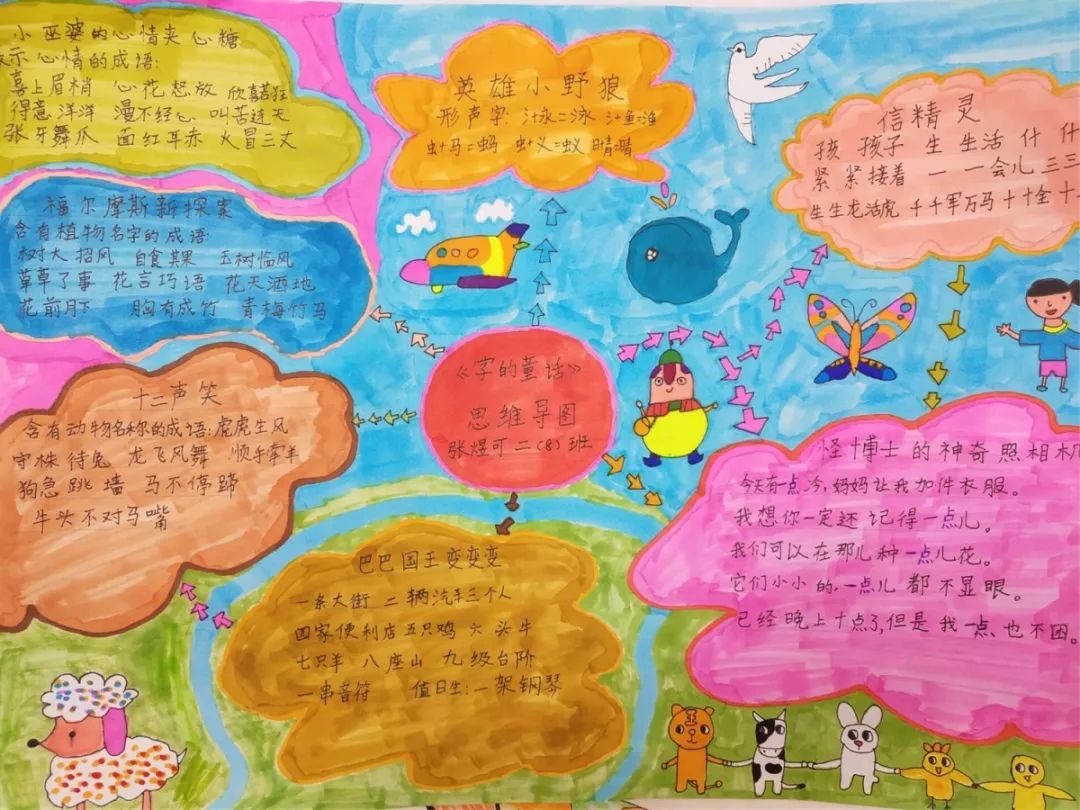 小巫婆的心情夹心糖
示心情的成语:
喜上眉梢 心花怒放 欣喜若狂
得意洋洋 漫不经心 叫苦连天
张牙舞爪 面红耳赤 火冒三丈
英雄小野狼
形声字: 氵+永=泳 氵+鱼=渔
虫+马=蚂 虫+义=蚁 晴=晴
信精灵
孩 孩子 生 生活 什 什
紧 紧接着 一 一会儿 三三
生生龙活虎 千千军万马 十十全十
福尔摩斯新探案
含有植物名字的成语:
树大招风 自食其果 玉树临风
草草了事 花言巧语 花天酒地
花前月下 胸有成竹 青梅竹马
《字的童话》
思维导图
张煜可 二(8)班
十二声笑
含有动物名称的成语:虎虎生风
守株待兔 龙飞凤舞 顺手牵羊
狗急跳墙 马不停蹄
牛头不对马嘴
巴巴国王变变变
一条大街 二辆汽车三个人
四家便利店五只鸡 六头牛
七只羊 八座山 九级台阶
一串音符 值日生:一架钢琴
怪博士的神奇照相机
今天有一点冷,妈妈让我加件衣服。
我想你一定还记得一点儿。
我们可以在那儿种一点儿花。
它们小小的,一点儿都不显眼。
已经晚上十点了,但是我一点也不困。